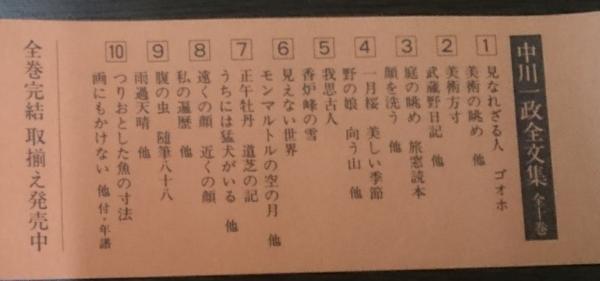 中川一政全文集 全十巻
1 見なれざる人 ゴオホ
美術の眺め 他
2 美術方寸
武蔵野日記 他
3 庭の眺め 旅窓読本
顔を洗う 他
4 一月桜 美しい季節
野の娘 向う山 他
5 我思古人
香炉峰の雪
6 見えない世界
モンマルトルの空の月 他
7 正午牡丹 道芝の記
うちには猛犬がいる 他
8 遠くの顔 近くの顔
私の遍歴 他
9 腹の虫 随筆八十八
雨過天晴 他
10 つりおとした魚の寸法
画にもかけない 他 付・年譜
全巻完結 取揃え発売中